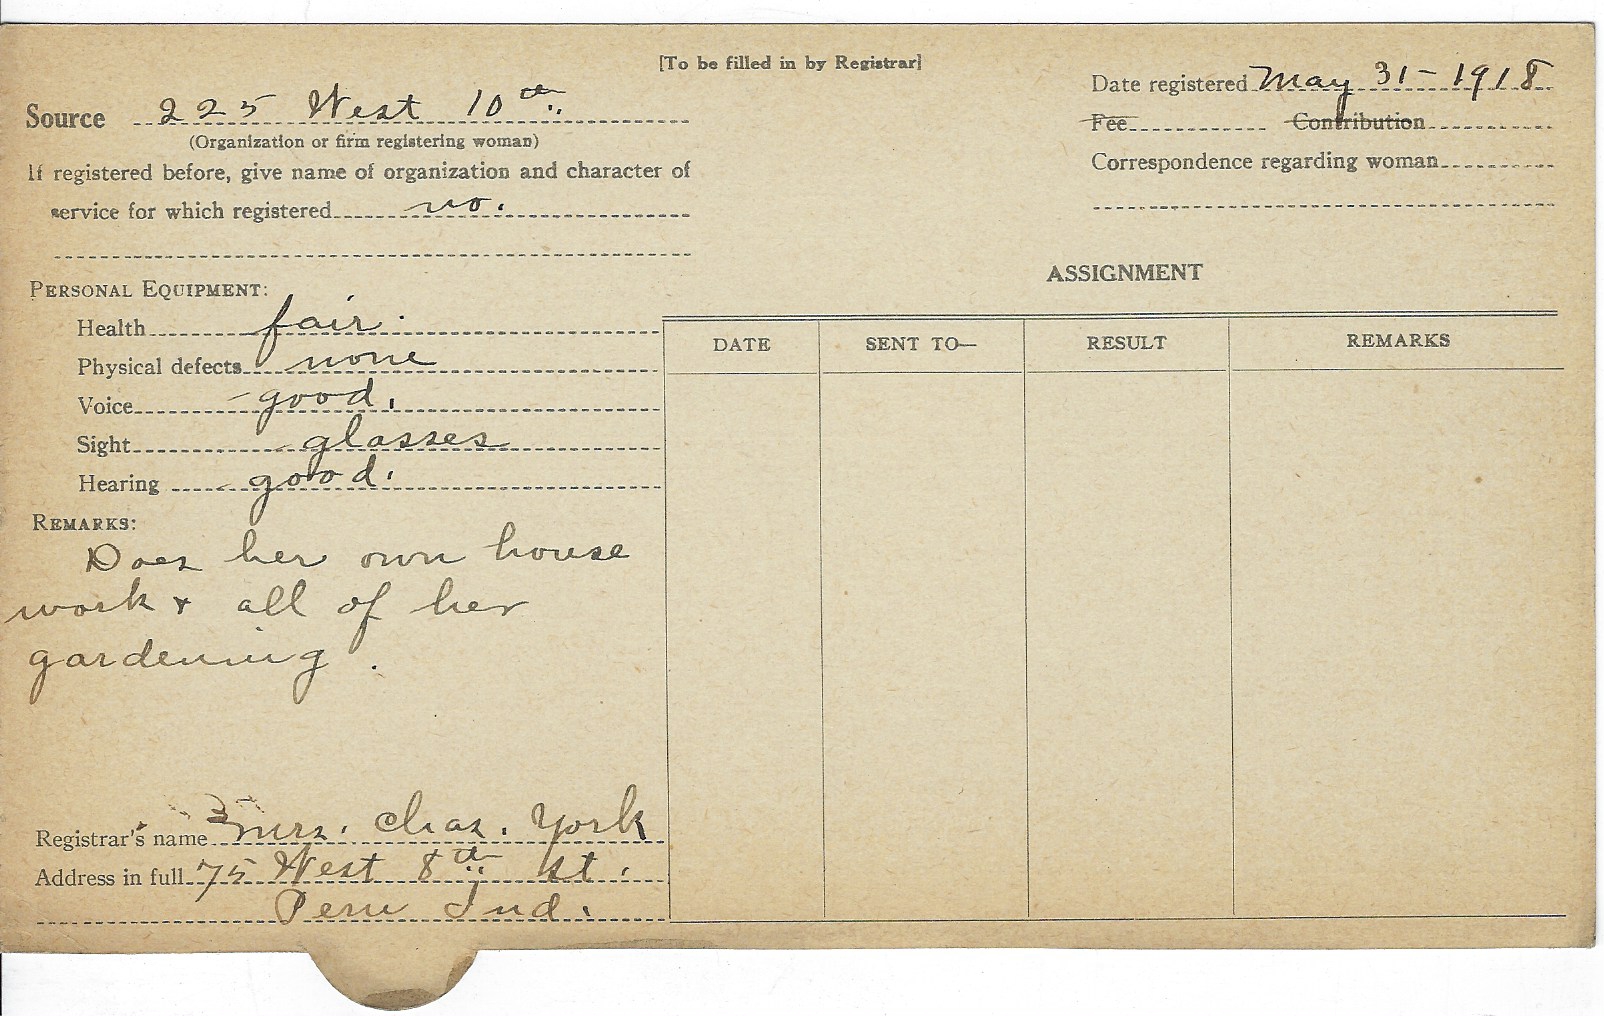 [To be filled in by Registrar]
Source 225 West 10th
(Organization or firm registering woman)
If registered before, give name of organization and character of
service for which registered no.
Date registered May 31-1918
Fee Contribution
Correspondence regarding woman
PERSONAL EQUIPMENT:
Health fair.
Physical defects none
Voice good.
Sight glasses
Hearing good.
REMARKS:
Does her own house
work & all of her
gardening.
Registrar's name Mrs. Chas. York
Address in full 75 West 8th St.
Peru Ind.
ASSIGNMENT
DATE SENT TO— RESULT REMARKS